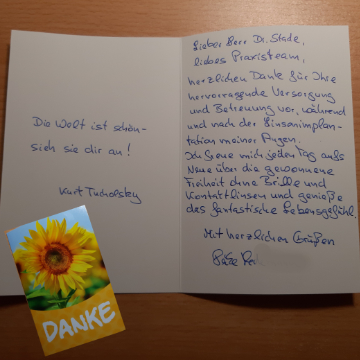 Die Welt ist schön -
sieh sie dir an!
Kurt Tucholsky
DANKE
Lieber Herr Dr. Stade,
liebes Praxisteam,
herzlichen Dank für Ihre
hervorragende Versorgung
und Betreuung vor, während
und nach der Linsenimplan-
tation meiner Augen.
Ich freue mich jeden Tag aufs
Neue über die gewonnene
Freiheit ohne Brille und
Kontaktlinsen und genieße
das fantastische Lebensgefühl.
Mit herzlichen Grüßen